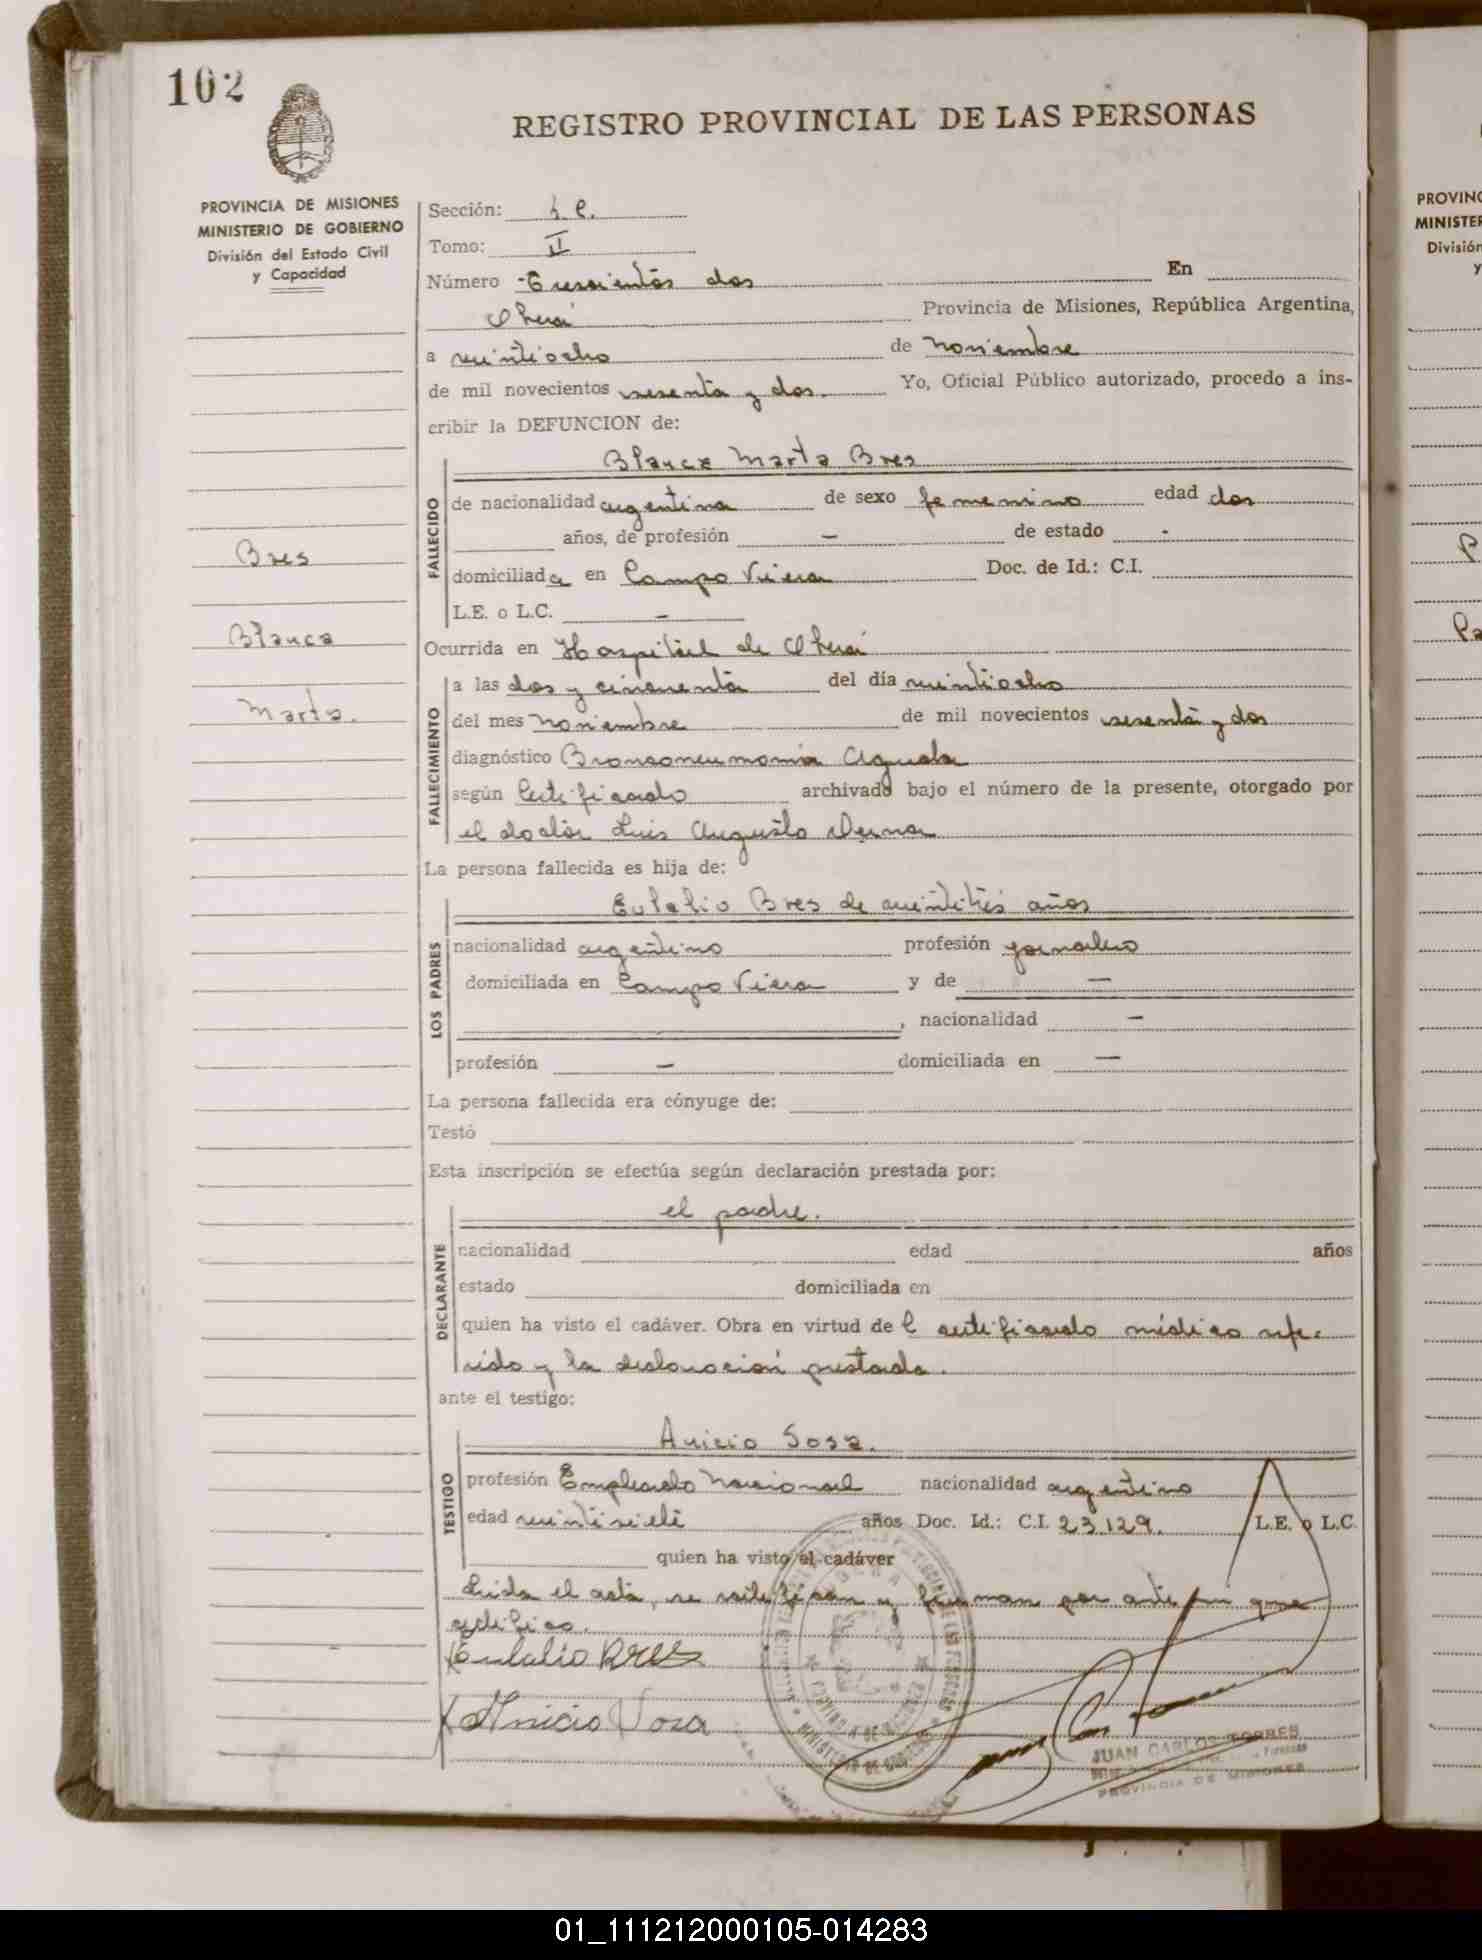 102
REGISTRO PROVINCIAL DE LAS PERSONAS
PROVINCIA DE MISIONES
MINISTERIO DE GOBIERNO
División del Estado Civil
y Capacidad
Sección:
Tomo: II
Número Trescientos dos En
Oberá Provincia de Misiones, República Argentina,
a veintiocho de noviembre
de mil novecientos sesenta y dos. Yo, Oficial Público autorizado, procedo a ins-
cribir la DEFUNCION de:
Blanca Marta Bres
FALLECIDO
de nacionalidad argentina de sexo femenino edad dos
años, de profesión — de estado -
domiciliada en Campo Viera Doc. de Id.: C.I.
L.E. o L.C. —
Bres
Blanca
Marta.
Ocurrida en Hospital de Oberá
FALLECIMIENTO
a las dos y cincuenta del día veintiocho
del mes noviembre de mil novecientos sesenta y dos
diagnóstico Bronconeumonia Aguda
según Certificado archivado bajo el número de la presente, otorgado por
el doctor Luis Augusto
La persona fallecida es hija de:
Eulalio Bres de veintitrés años
LOS PADRES
nacionalidad argentino profesión jornalero
domiciliada en Campo Viera y de —
, nacionalidad —
profesión — domiciliada en —
La persona fallecida era cónyuge de:
Testó
Esta inscripción se efectúa según declaración prestada por:
el padre.
DECLARANTE
nacionalidad edad años
estado domiciliada en
quien ha visto el cadáver. Obra en virtud de l certificado médico refe-
rido y la declaración prestada.
ante el testigo:
Anicio Sosa.
TESTIGO
profesión Empleado Nacional nacionalidad argentino
edad veintisiete años Doc. Id.: C.I. 23.129. L.E. o L.C.
quien ha visto el cadáver
Leida el acta, se ratifican y firman por ante mi que
certifico.
Eulalio Bres
Anicio Sosa
JUAN CARLOS TORRES
PROVINCIA DE MISIONES
PROVINC
MINISTER
División
y
01_111212000105-014283